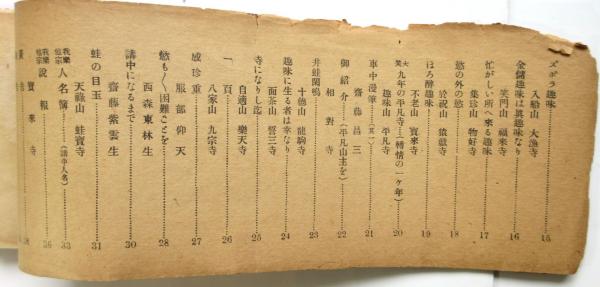 ズボラ趣味
入船山 大漁寺……15
金儲趣味は眞趣味なり
笑門山 福来寺……16
忙がしい所へ来る趣味
集珍山 物好寺……17
慾の外の慾
於祝山 猿戯寺……18
ほろ酔趣味
不老山 寳來寺……19
大笑 九年の平凡寺―(禅情の一ヶ年)
趣味山 平凡寺……20
車中漫筆(其一)……21
齋藤昌三
御紹介(平凡山主を)……22
相對寺
井蛙閑鳴……23
十徳山 龍駒寺
趣味に生る者は幸なり……24
面茶山 誓三寺
寺になりし迄……25
自適山 樂天寺
一、頁……26
八家山 九宗寺
感珍重……27
服部仰天
慾も〳〵困難ことを……28
西森東林生
講中になるまで……30
齋藤紫雲生
蛙の目玉……31
天祿山 蛙寳寺
我樂他宗 人名簿……(講中人名)……33
我樂他宗 說報……36
寳來寺……38